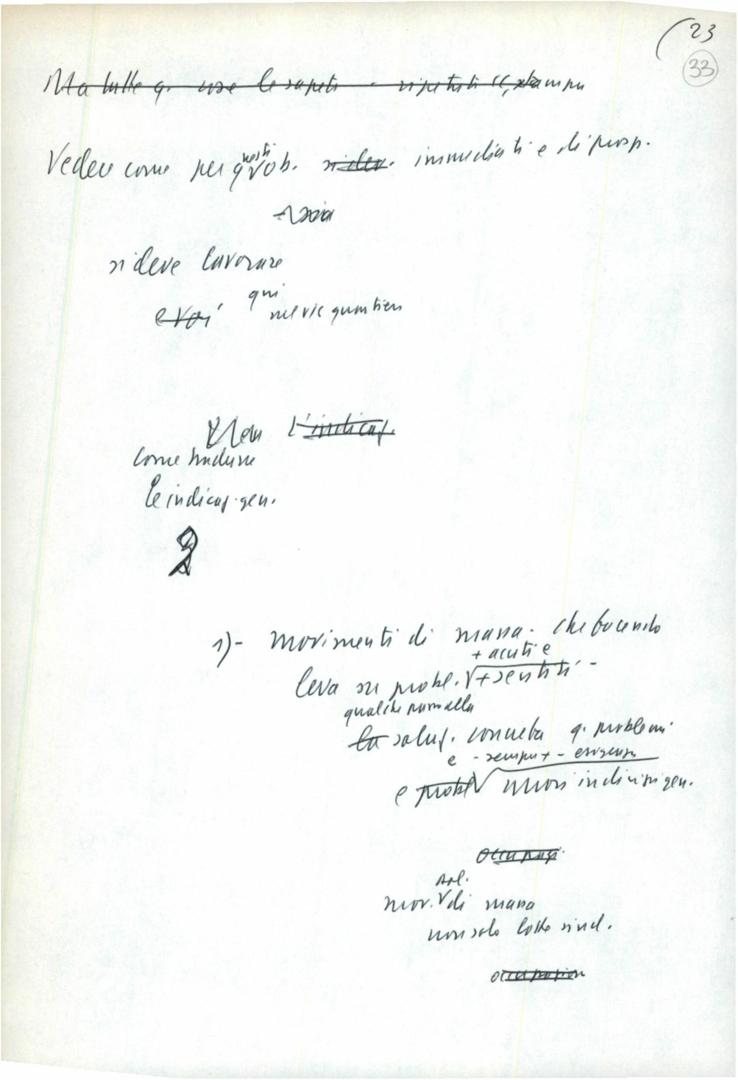 23
33
Ma tutte q. cose le sapete - ripetuti
Vedere come per questi ob. si deve immediati e di prosp.
si deve lavorare
qui
e voi nei vs quartieri
Veder l'indicaz.
come tradurre
le indicaz. gen.
1)- movimenti di massa - che facendo
+ acuti e
leva su probl. + sentiti -
qualche
la soluz. concreta q. problemi
e - sempre + - esigenza
e probl nuovi indirizzi gen.
occupaz.
mov. di massa
non solo lotte sind.
occupazion